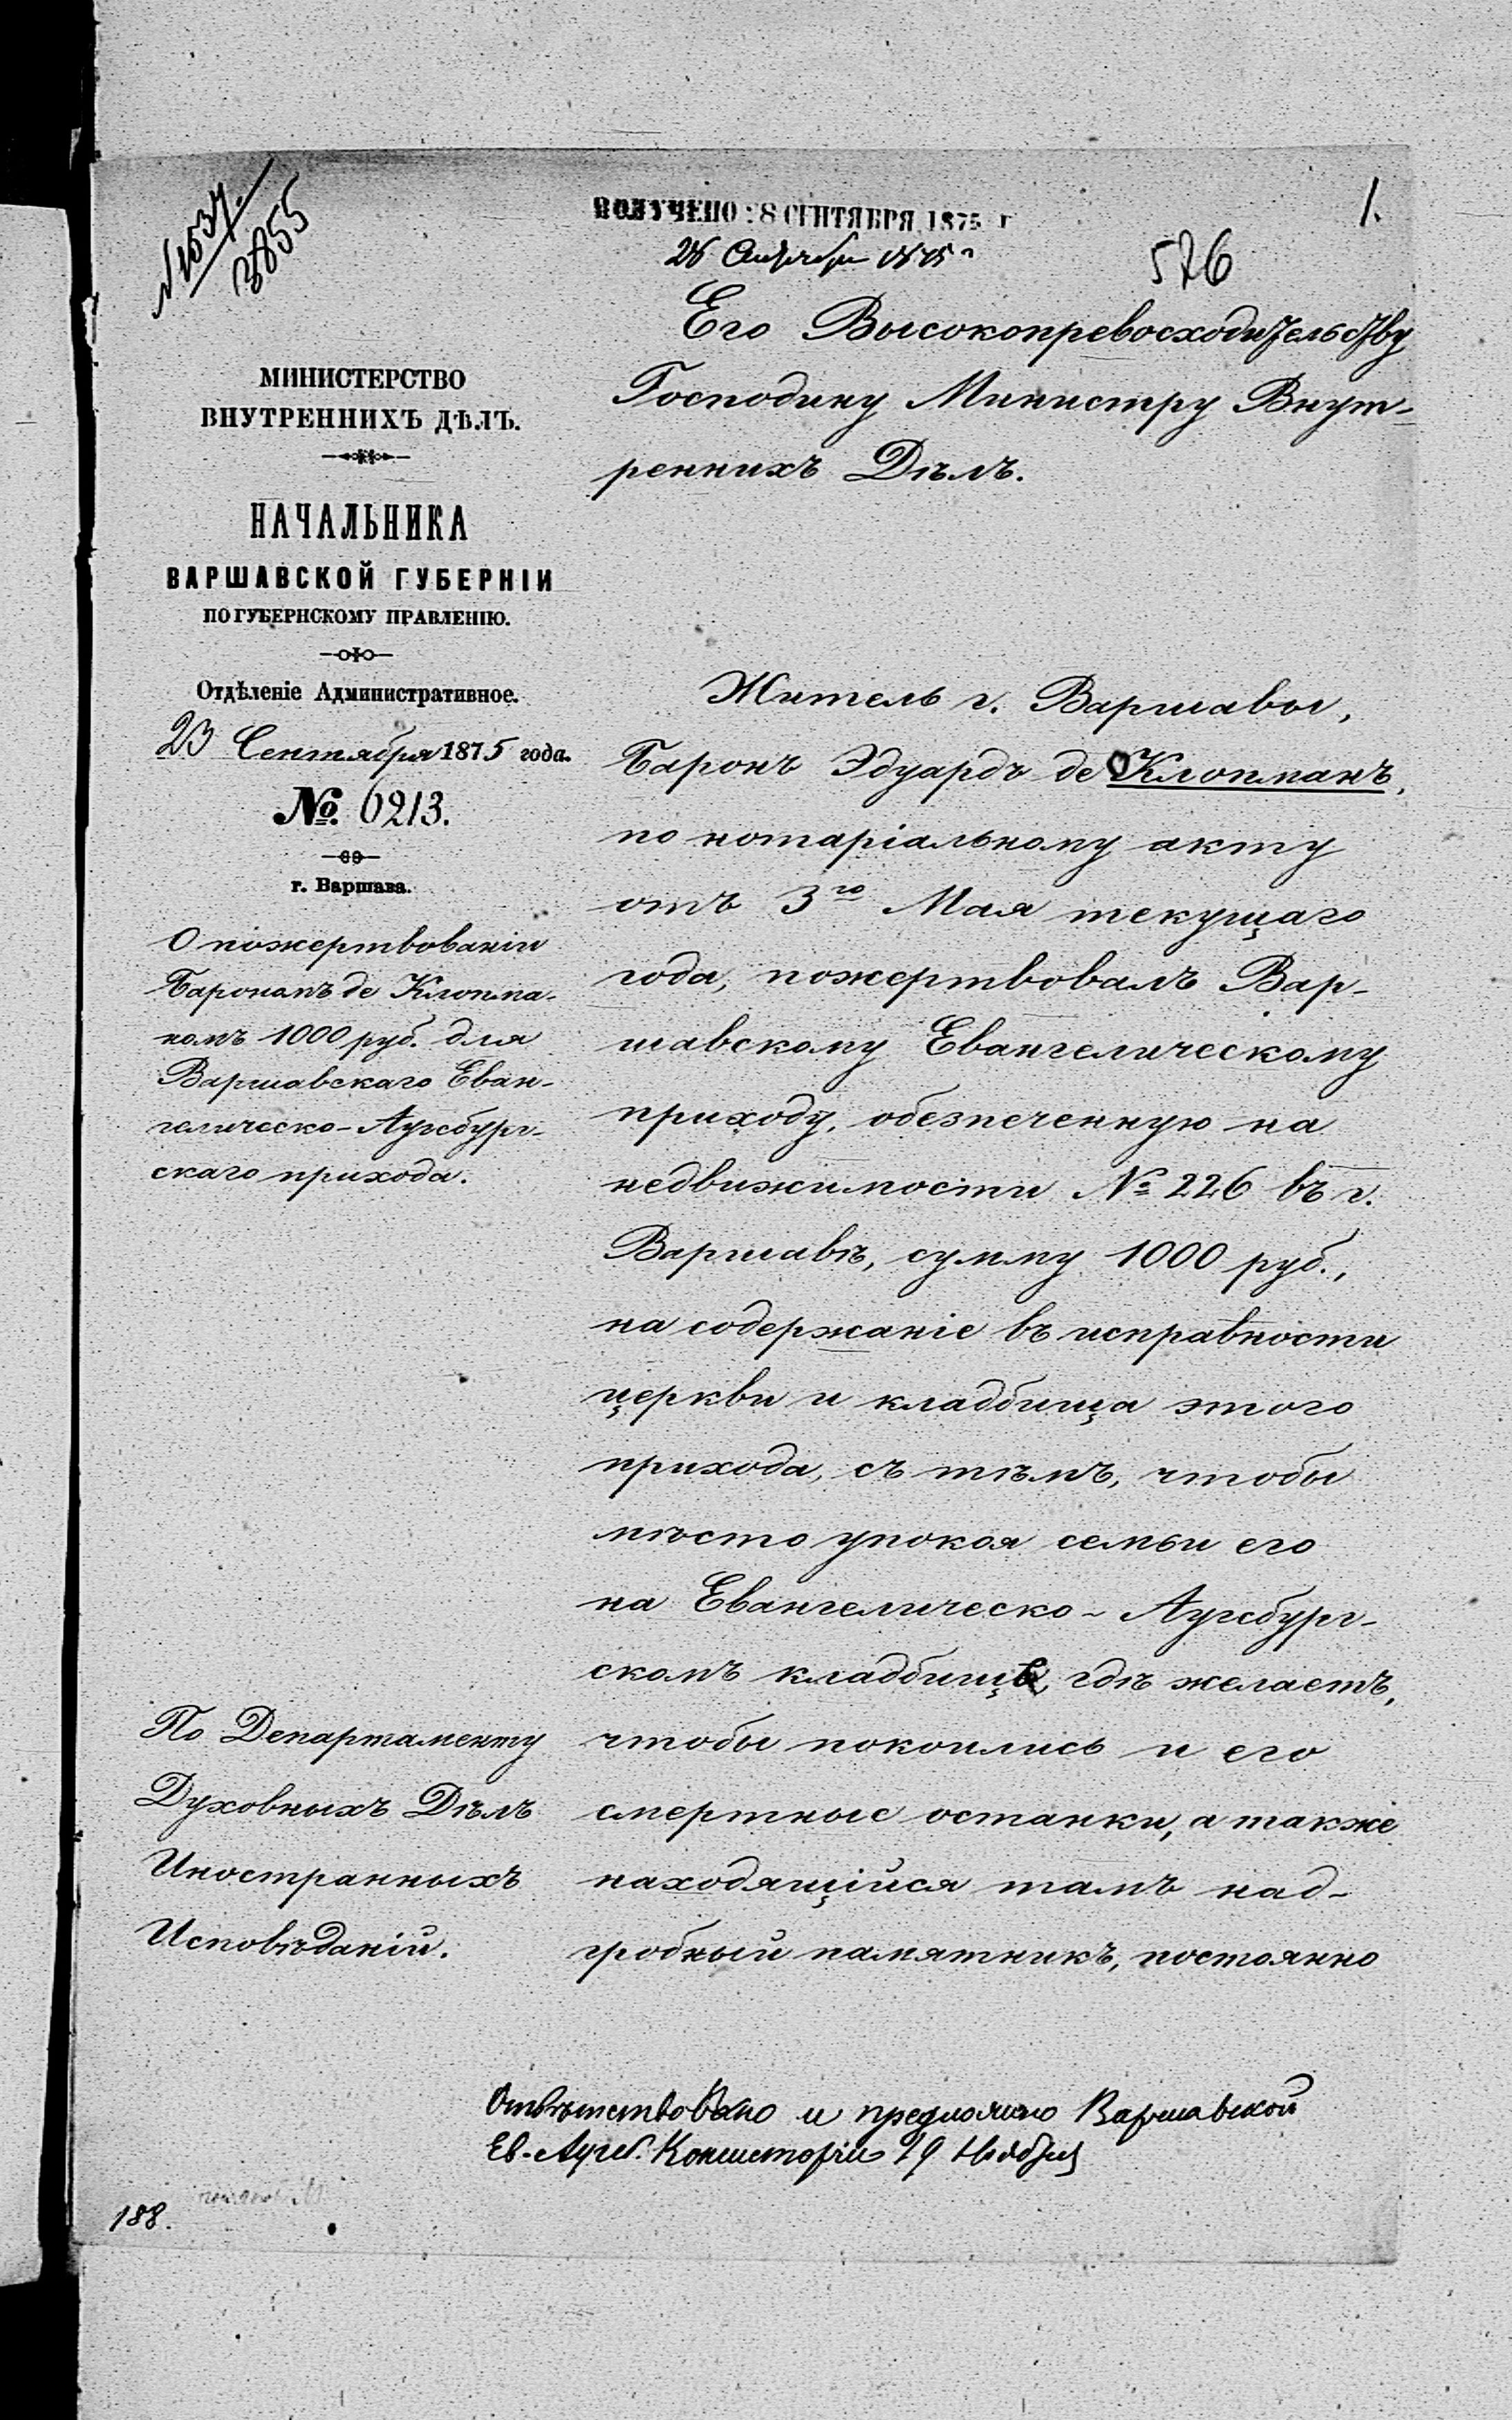 № 1537.
3855
ПОЛУЧЕНО 28 СЕНТЯБРЯ 1875 г
1.
526
Его Высокопревосходительству
Господину Министру Внут-
реннихъ Дѣлъ.
МИНИСТЕРСТВО
ВНУТРЕННИХЪ ДѢЛЪ.
НАЧАЛЬНИКА
ВАРШАВСКОЙ ГУБЕРНІИ
ПО ГУБЕРНСКОМУ ПРАВЛЕНІЮ.
Отдѣленіе Административное.
23 Сентября 1875 года.
№. 6213.
г. Варшава.
О пожертвованіи
Барономъ де Клопма-
номъ 1000 руб. для
Варшавскаго Еван-
гелическо-Аугсбург-
скаго прихода.
По Департаменту
Духовныхъ Дѣлъ
Иностранныхъ
Исповѣданій.
Житель г. Варшавы,
Баронъ Эдуардъ де Клопманъ,
по нотаріальному акту
отъ 3го Мая текущаго
года, пожертвовалъ Вар-
шавскому Евангелическому
приходу, обезпеченную на
недвижимости № 226 въ г.
Варшавѣ, сумму 1000 руб.,
на содержаніе въ исправности
церкви и кладбища этого
прихода, съ тѣмъ, чтобы
мѣсто упокоя семьи его
на Евангелическо-Аугсбург-
скомъ кладбищѣ, гдѣ желаетъ,
чтобы покоились и его
смертные останки, а также
находящійся тамъ над-
гробный памятникъ, постоянно
Отвѣтствовано и предложено Варшавской
Ев.-Аугсб. Консисторіи 19 Ноября
188.